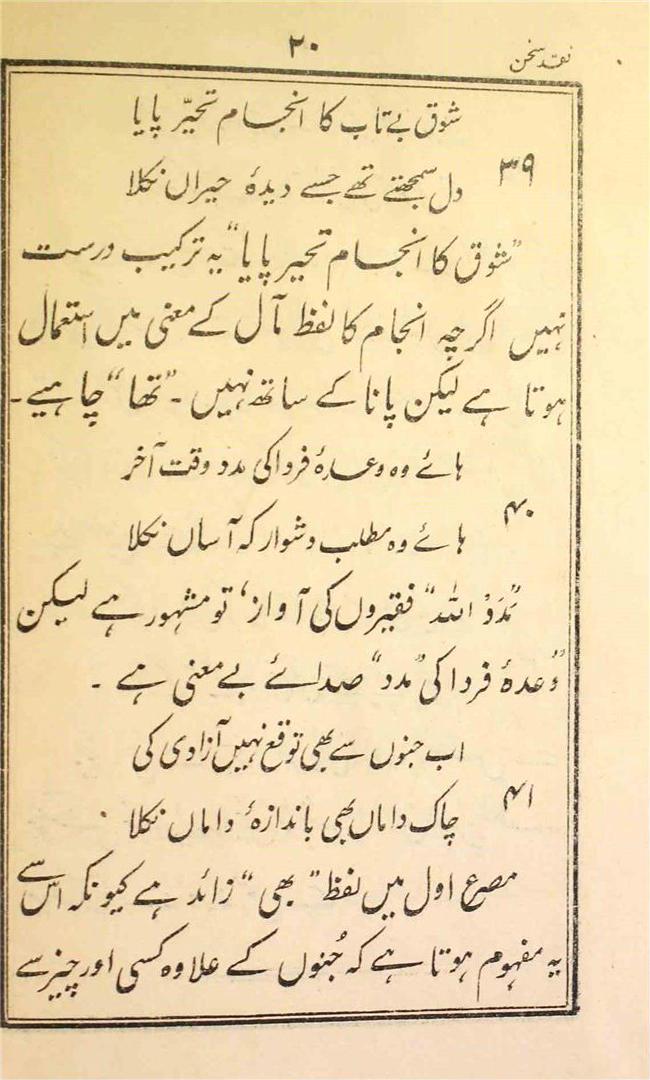 نقد سخن
۲۰
شوق بے تاب کا انجام تحیّر پایا
۳۹
دل سمجھتے تھے جسے دیدۂ حیراں نکلا
"شوق کا انجام تحیر پایا" یہ ترکیب درست
نہیں اگرچہ انجام کا لفظ مآل کے معنی میں استعمال
ہوتا ہے لیکن پانا کے ساتھ نہیں۔ "تھا" چاہیے۔
ہائے وہ وعدۂ فردا کی مدد وقت آخر
۴۰
ہائے وہ مطلب دشوار کہ آساں نکلا
"مَدَدُ اللہ" فقیروں کی آواز، تو مشہور ہے لیکن
"وعدۂ فردا کی "مدد" صدائے بے معنی ہے۔
اب جنوں سے بھی توقع نہیں آزادی کی
۴۱
چاک داماں بھی باندازۂ داماں نکلا
مصرع اول میں لفظ "بھی" زائد ہے کیونکہ اس سے
یہ مفہوم ہوتا ہے کہ جُنوں کے علاوہ کسی اور چیز سے